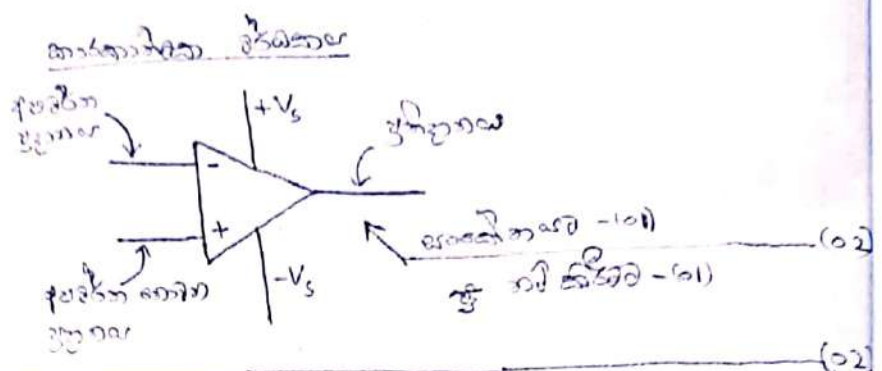 කාරකාත්මක වර්ධකය
අපවර්තන
ප්‍රදානය
+Vs
ප්‍රතිදානය
-
+
සංකේතයට -(01)
(02)
නම් කිරීමට -(01)
අපවර්තන නොවන
ප්‍රදානය
-Vs
(02)